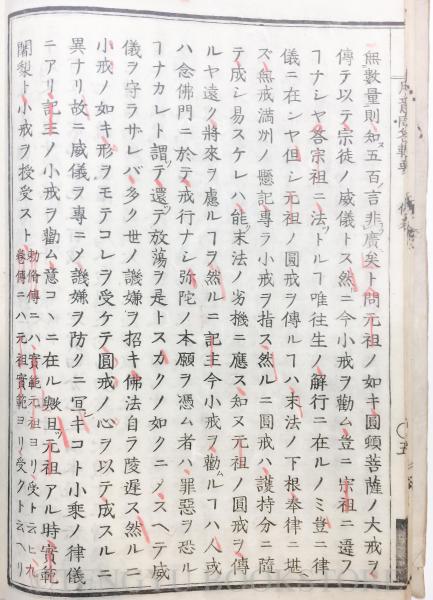 無數量則知ヌ五百ノ言非廣矣ト問元祖ノ如キ圓頓菩薩ノ大戒ヲ
傳テ以テ宗徒ノ威儀トス然ニ今小戒ヲ勸ム豈ニ宗祖ニ違フ
ヿナシヤ答宗祖ニ法ットルヿ唯往生ノ解行ニ在ルノミ豈律
儀ニ在ンヤ但シ元祖ノ圓戒ヲ傳ルヿハ末法ノ下根奉律ニ堪ヘ
ズ無戒滿州ノ懸記專ラ小戒ヲ指ス然ルニ圓戒ハ護持分ニ隨
テ成シ易スケレハ能末法ノ劣機ニ應ス知ヌ元祖ノ圓戒ヲ傳
ルヤ遠ク將來ヲ慮ルヿヲ然ルニ記主今小戒ヲ勸ムルヿハ人或
ハ念佛門ニ於テ戒行ナシ弥陀ノ本願ヲ憑ム者ハ罪惡ヲ恐ル
ヿナカレト謂テ還テ放蕩ヲ是トスカクノ如クニノスヘテ威
儀ヲ守ラザレバ多ク世ノ譏嫌ヲ招キ佛法自ラ陵遲ス然ルニ
小戒ノ如キ形ヲモテコレヲ受ケテ圓戒ノ心ヲ以テ成スルニ
異ナリ故ニ威儀ヲ專ニメ譏嫌ヲ防クニ冝キコト小乘ノ律儀
ニアリ記主ノ小戒ヲ勸ム意コヽニ在ル歟且ッ元祖アル時實範
闍梨ト小戒ヲ授受スト
勅脩傳ニハ實範元祖ヨリ受ト云ヒ九
卷傳ニハ元祖實範ヨリ受クト云ヘリ